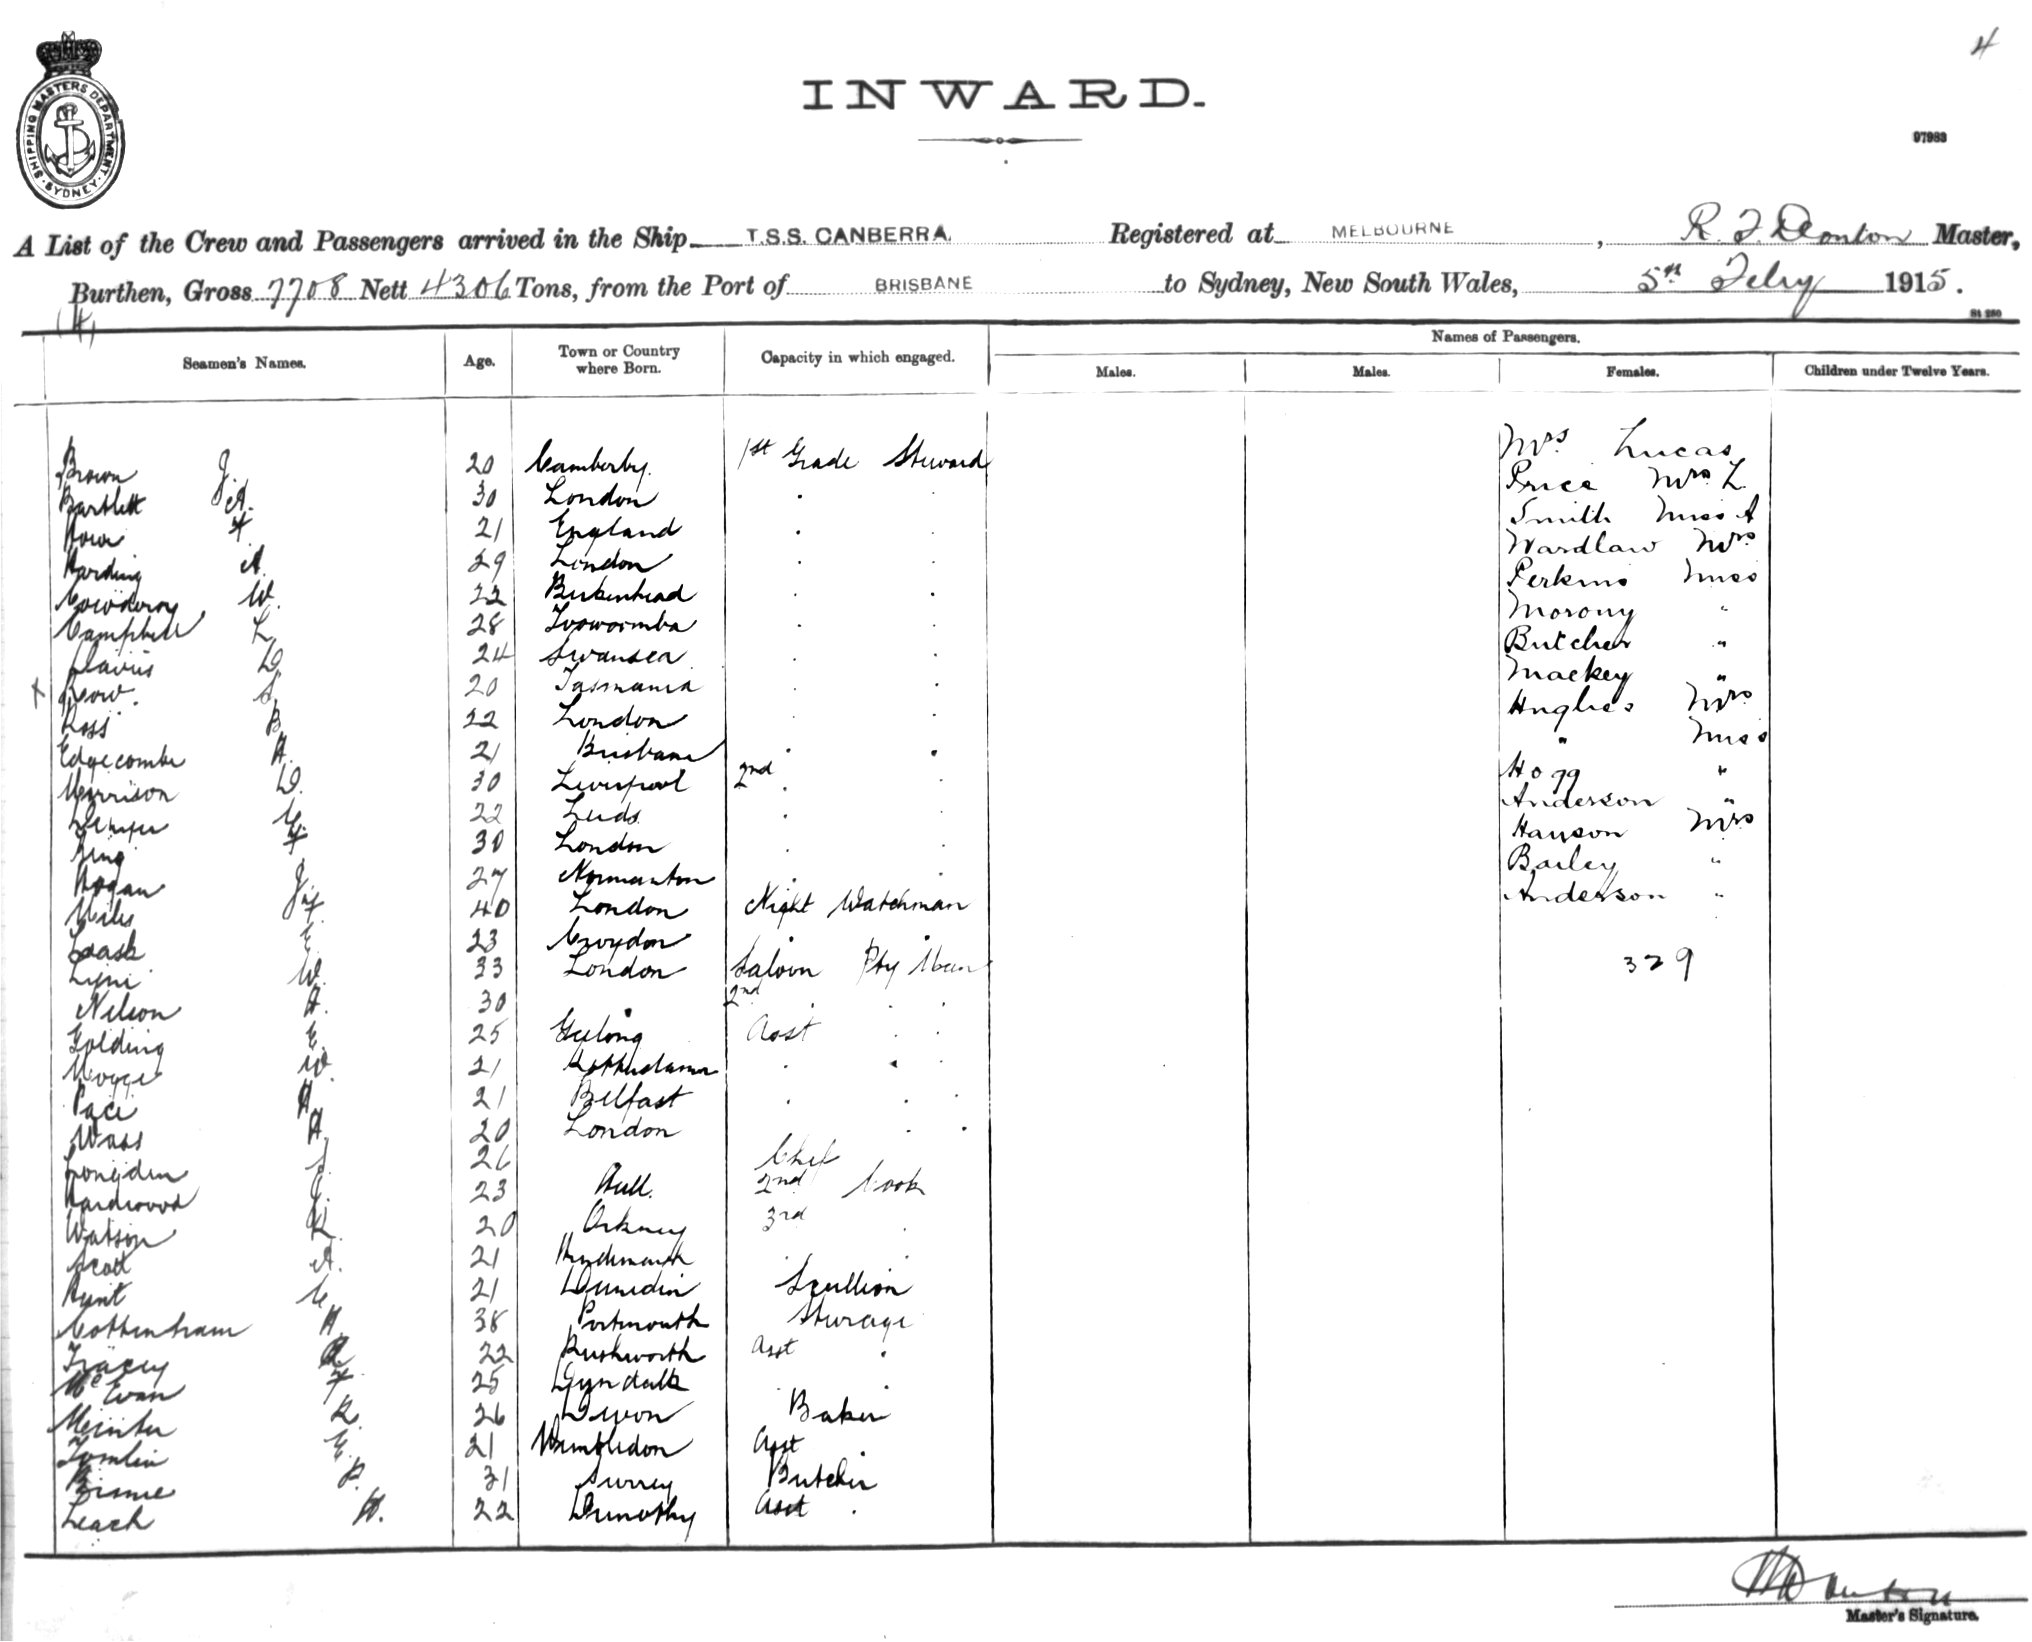 4
INWARD.
SHIPPING MASTERS DEPARTMENT. SYDNEY.
97983
A List of the Crew and Passengers arrived in the Ship T.S.S. CANBERRA. Registered at MELBOURNE, R. J. Donton Master,
Burthen, Gross 7708 Nett 4306 Tons, from the Port of BRISBANE to Sydney, New South Wales, 5th Feby 1915.
(4)
Seamen's Names. Age. Town or Country where Born. Capacity in which engaged. Names of Passengers.
Males. Males. Females. Children under Twelve Years.
Brown J. 20 Camberly. 1st Grade Steward Mrs Lucas
Bartlett A. 30 London . . Price Mrs L.
21 England . . Smith Miss A
Harding A. 29 London . . Wardlaw Mrs
W. 22 Birkenhead . . Perkins Miss
Campbell L. 28 Toowoomba . . Morony "
D. 24 Swansea . . Butcher "
x S. 20 Tasmania . . Mackey "
Ross B. 22 London . . Hughes Mrs
Edgecombe H. 21 Brisbane . . " Miss
Morrison D. 30 Liverpool 2nd . . Hogg "
C. 22 Leeds . . Anderson "
King F. 30 London . . Hanson Mrs
Hogan J. 27 Normanton . . Bailey "
Miles 40 London Night Watchman Anderson "
E. 23 Croydon . .
W. 33 London Saloon Pty Man 329
Nelson H. 30 . 2nd . .
Golding E. 25 Geelong Asst . .
W. 21 . . .
H. 21 Belfast . . .
Wass H. 20 London . .
Longden 26 Chef
Hardwood J. 23 Hull. 2nd Cook
Watson R. 20 Orkney 3rd .
Scott A. 21 Hindmarsh . .
Hunt C. 21 Dunedin Scullion
Cottenham H. 38 Portmouth Sturage
Tracey R. 22 Rushworth Asst .
McEvan F. 25 . .
R. 26 Devon Baker
Tomlin E. 21 Wimbledon Asst .
P. 31 Surrey Butcher
Leach H. 22 Asst .
Master's Signature.